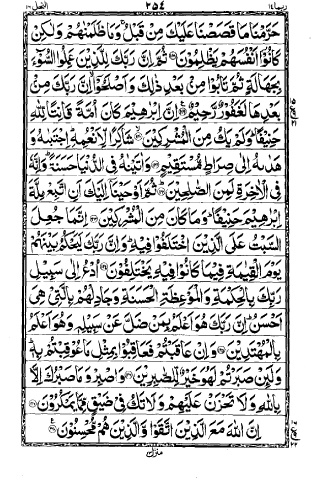 ربما ١٤ ٢٥٤ النحل ١٦
حَرَّمْنَا مَا قَصَصْنَا عَلَيْكَ مِنْ قَبْلُ ۚ وَمَا ظَلَمْنٰهُمْ وَلٰكِنْ
كَانُوْۤا اَنْفُسَهُمْ يَظْلِمُوْنَ ﴿۱۱۸﴾ ثُمَّ اِنَّ رَبَّكَ لِلَّذِيْنَ عَمِلُوا السُّوْٓءَ
بِجَهَالَةٍ ثُمَّ تَابُوْا مِنْۢ بَعْدِ ذٰلِكَ وَاَصْلَحُوْۤا ۙ اِنَّ رَبَّكَ مِنْۢ
بَعْدِهَا لَغَفُوْرٌ رَّحِيْمٌ ﴿۱۱۹﴾ اِنَّ اِبْرٰهِيْمَ كَانَ اُمَّةً قَانِتًا لِّلّٰهِ
حَنِيْفًا ؕ وَلَمْ يَكُ مِنَ الْمُشْرِكِيْنَ ﴿۱۲۰﴾ شَاكِرًا لِّاَنْعُمِهٖ ؕ اِجْتَبٰىهُ وَ
هَدٰىهُ اِلٰى صِرَاطٍ مُّسْتَقِيْمٍ ﴿۱۲۱﴾ وَاٰتَيْنٰهُ فِى الدُّنْيَا حَسَنَةً ؕ وَاِنَّهٗ
فِى الْاٰخِرَةِ لَمِنَ الصّٰلِحِيْنَ ﴿۱۲۲﴾ ثُمَّ اَوْحَيْنَاۤ اِلَيْكَ اَنِ اتَّبِعْ مِلَّةَ
اِبْرٰهِيْمَ حَنِيْفًا ؕ وَمَا كَانَ مِنَ الْمُشْرِكِيْنَ ﴿۱۲۳﴾ اِنَّمَا جُعِلَ
السَّبْتُ عَلَى الَّذِيْنَ اخْتَلَفُوْا فِيْهِ ؕ وَاِنَّ رَبَّكَ لَيَحْكُمُ بَيْنَهُمْ
يَوْمَ الْقِيٰمَةِ فِيْمَا كَانُوْا فِيْهِ يَخْتَلِفُوْنَ ﴿۱۲۴﴾ اُدْعُ اِلٰى سَبِيْلِ
رَبِّكَ بِالْحِكْمَةِ وَالْمَوْعِظَةِ الْحَسَنَةِ وَجَادِلْهُمْ بِالَّتِىْ هِىَ
اَحْسَنُ ؕ اِنَّ رَبَّكَ هُوَ اَعْلَمُ بِمَنْ ضَلَّ عَنْ سَبِيْلِهٖ وَهُوَ اَعْلَمُ
بِالْمُهْتَدِيْنَ ﴿۱۲۵﴾ وَاِنْ عَاقَبْتُمْ فَعَاقِبُوْا بِمِثْلِ مَا عُوْقِبْتُمْ بِهٖ ؕ
وَلَئِنْ صَبَرْتُمْ لَهُوَ خَيْرٌ لِّلصّٰبِرِيْنَ ﴿۱۲۶﴾ وَاصْبِرْ وَمَا صَبْرُكَ اِلَّا
بِاللّٰهِ وَلَا تَحْزَنْ عَلَيْهِمْ وَلَا تَكُ فِىْ ضَيْقٍ مِّمَّا يَمْكُرُوْنَ ﴿۱۲۷﴾
اِنَّ اللّٰهَ مَعَ الَّذِيْنَ اتَّقَوْا وَّالَّذِيْنَ هُمْ مُّحْسِنُوْنَ ﴿۱۲۸﴾
منزل